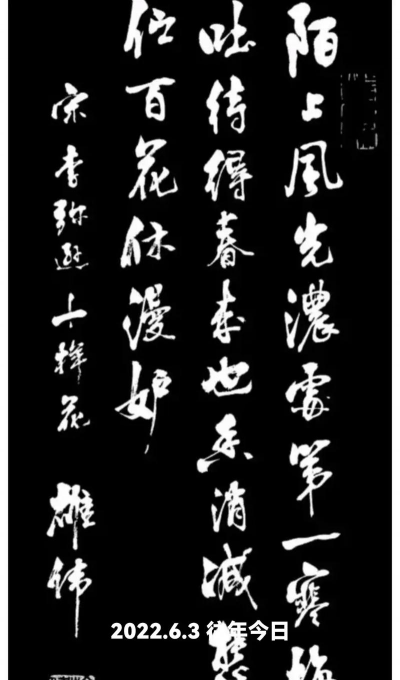 陌上風光濃處第一寒梅
吐待得春來也香消減態
伫百花休漫妒
宋李弥遜十樣花 雄偉
2022.6.3 往年今日